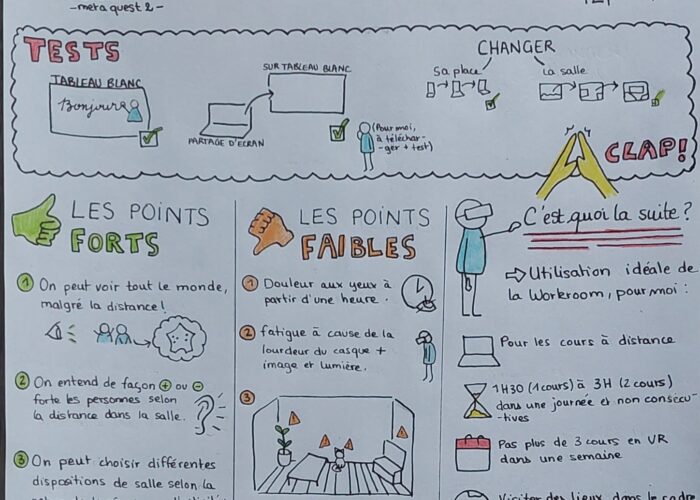 -meta quest 2-
TESTS
TABLEAU BLANC
Bonjour
PARTAGE D'ECRAN
SUR TABLEAU BLANC
(Pour moi,
à téléchar-
ger + test)
CHANGER
Sa place
La salle
CLAP!
LES POINTS
FORTS
1 On peut voir tout le monde,
malgré la distance!
2 On entend de façon + ou -
forte les personnes selon
la distance dans la salle.
3 On peut choisir différentes
dispositions de salle selon la
LES POINTS
FAIBLES
1 Douleur aux yeux à
partir d'une heure.
2 fatigue à cause de la
lourdeur du casque +
image et lumière.
3
C'est quoi la suite?
⇨ Utilisation idéale de
la Workroom, pour moi:
Pour les cours à distance
1H30 (1 cours) à 3H (2 cours)
dans une journée et non consécu-
tives
Pas plus de 3 cours en VR
dans une semaine
Visiter des lieux dans le cadre